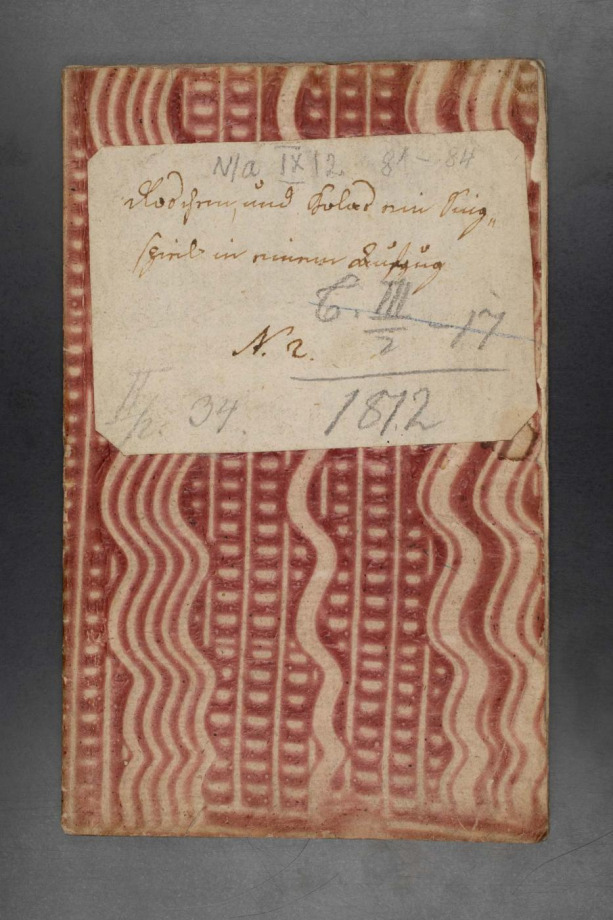 N/a IX/2. 81 – 84
Röschen, und Colas ein Sing„
spiel in einem Aufzug
C. III/2 17
N. 2.
II/p. 34. 1812